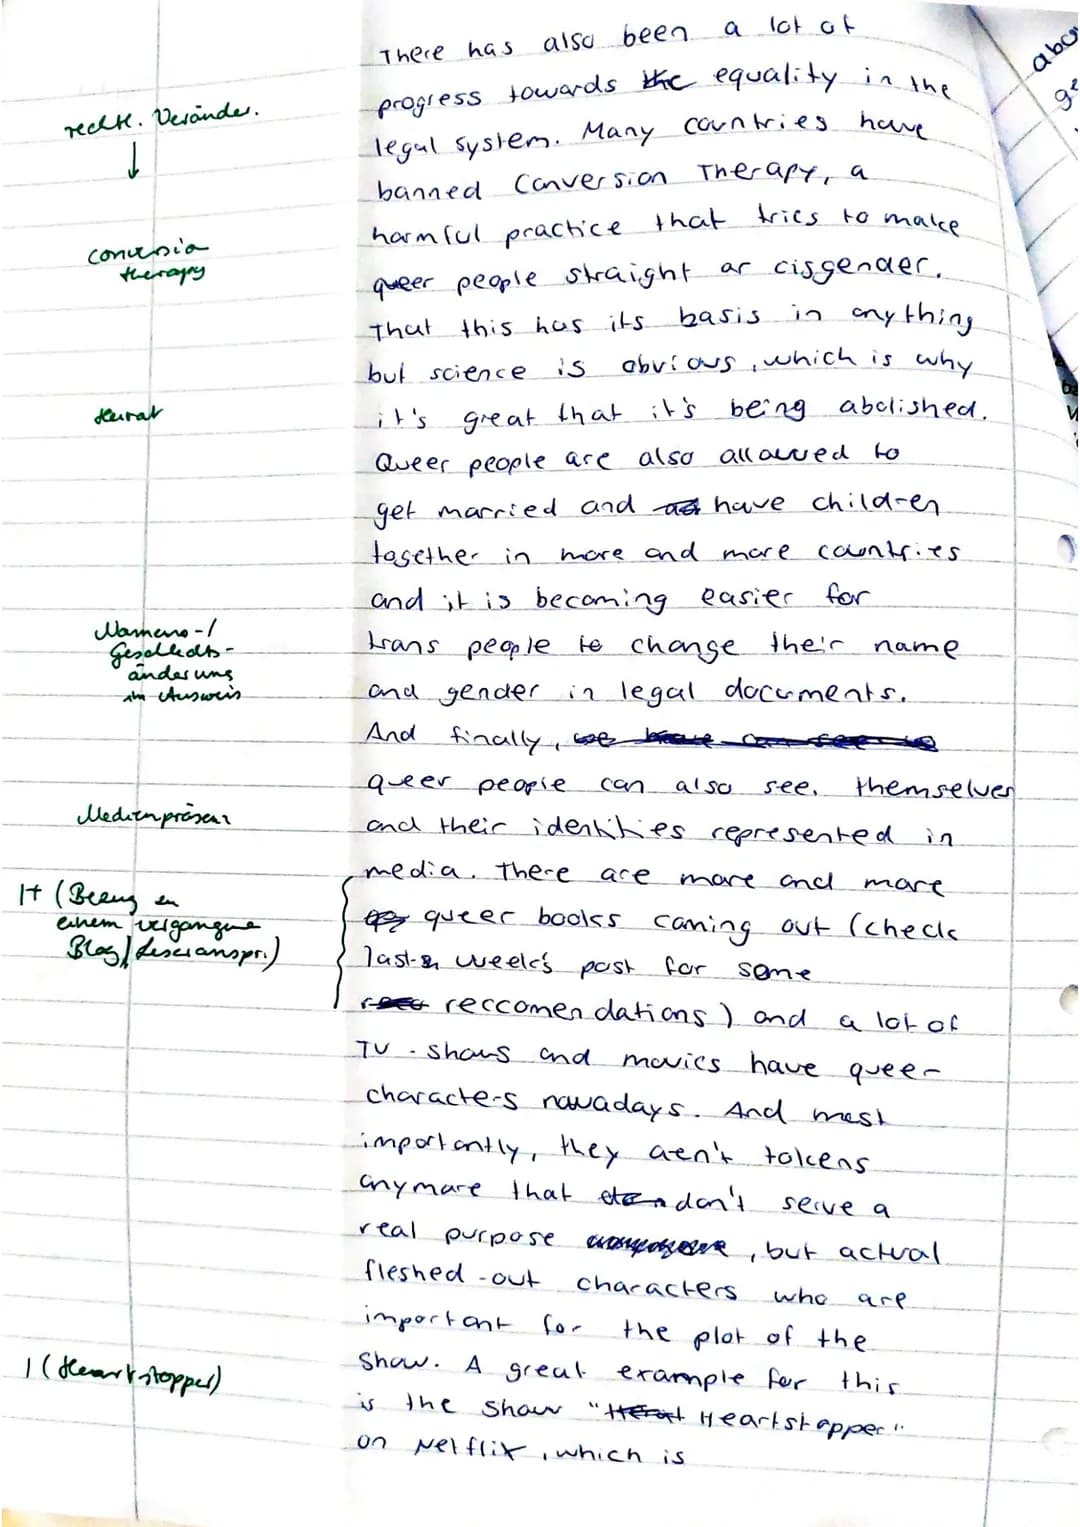 There has also been a lot of
progress towards the equality in the
legal system. Many countries have
banned Conversion Therapy, a
harmful practice that tries to make
queer people straight or cisgender.
That this has its basis in anything
but science is obvious, which is why
it's great that it's being abolished.
Queer people are also allowed to
get married and have children
together in more and more countries
and it is becoming easier for
trans people to change their name
and gender in legal documents.
And finally, we have can see
queer people can also see themselves
and their identities represented in
media. There are more and more
queer books coming out (check
last week's post for some
reccomendations) and a lot of
TV-shows and movies have queer
characters nowadays. And most
importantly, they aren't tokens
anymore that don't serve a
real purpose, but actual
fleshed-out characters who are
important for the plot of the
show. A great example for this
is the show "Heartstopper"
on Netflix, which is
rechtl. Veränder.
↓
conversion
therapy
Heirat
Namens-/
Geschlechts-
änderung
im Ausweis
Medienpräsenz
1+ (Bezug
einem vergangene
Blog/Leseranspr.)
1 (Heartstopper)
abo